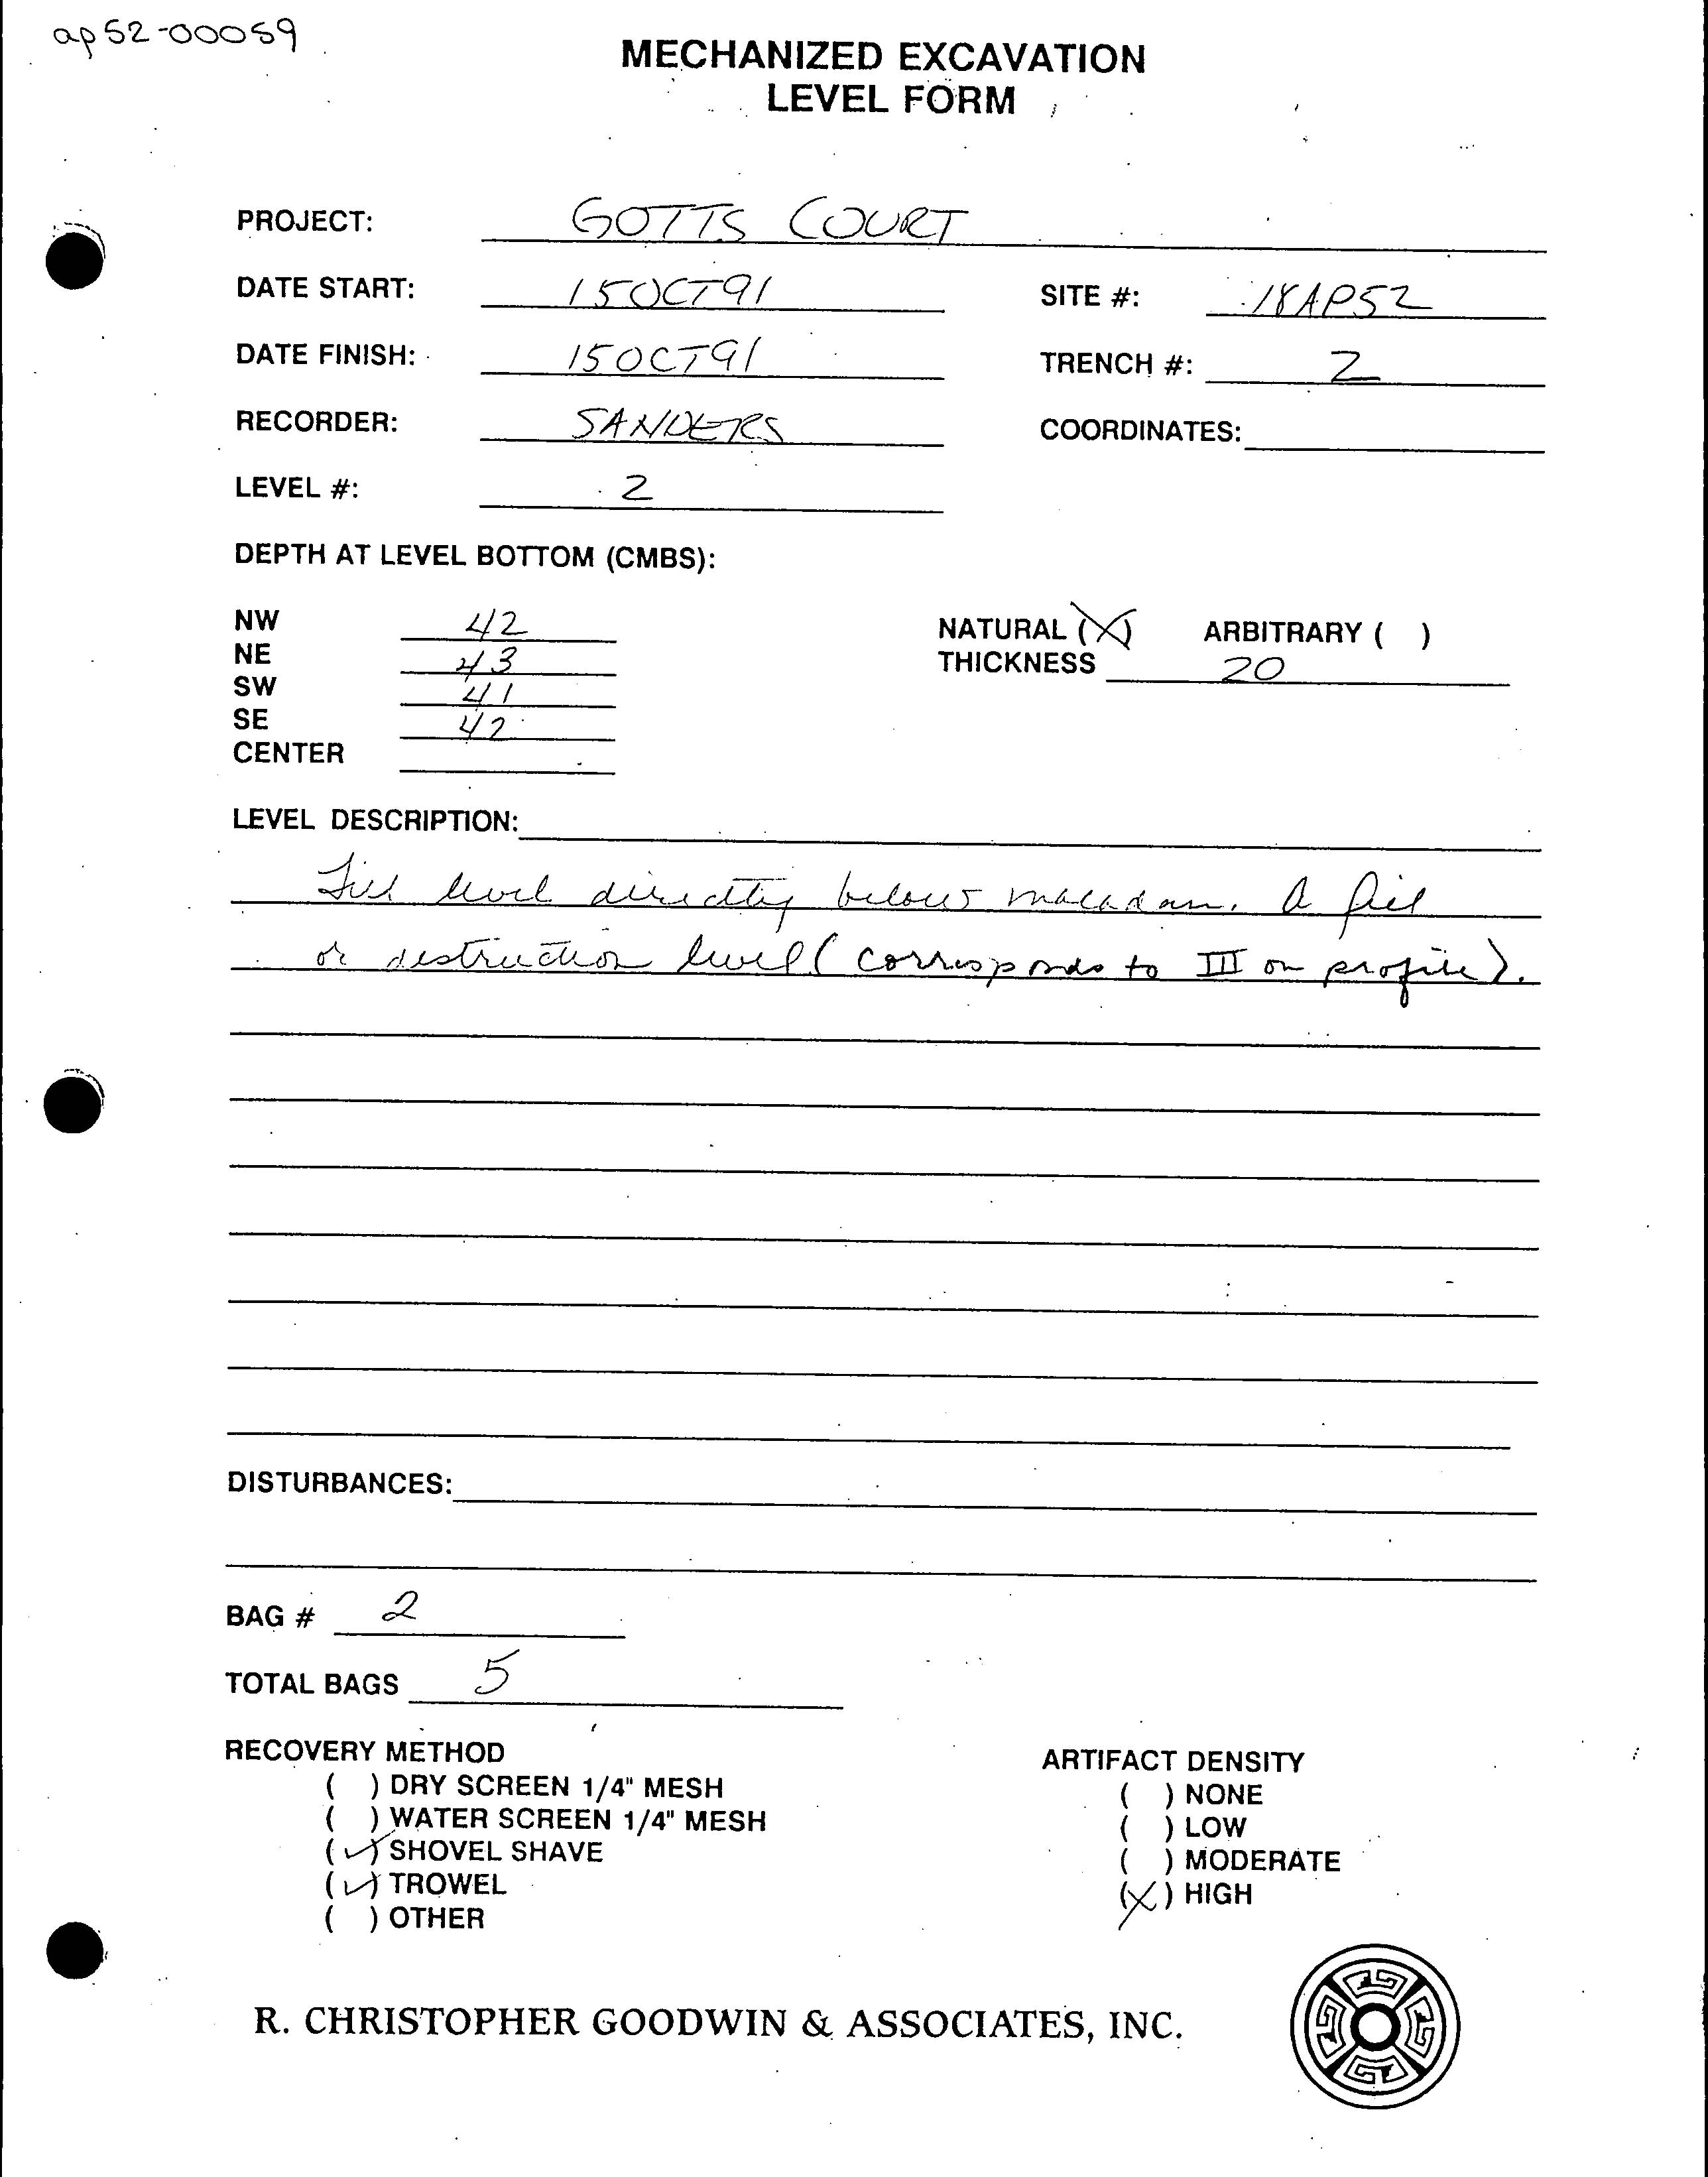 ap52-00059
MECHANIZED EXCAVATION
LEVEL FORM
PROJECT: GOTTS COURT
DATE START: 15OCT91 SITE #: 18AP52
DATE FINISH: 15OCT91 TRENCH #: 2
RECORDER: SANDERS COORDINATES:
LEVEL #: 2
DEPTH AT LEVEL BOTTOM (CMBS):
NW 42 NATURAL (X) ARBITRARY ( )
NE 43 THICKNESS 20
SW 41
SE 42
CENTER
LEVEL DESCRIPTION:
Fill level directly below macadam. A fill
or destruction level (corresponds to III on profile).
DISTURBANCES:
BAG # 2
TOTAL BAGS 5
RECOVERY METHOD ARTIFACT DENSITY
( ) DRY SCREEN 1/4" MESH ( ) NONE
( ) WATER SCREEN 1/4" MESH ( ) LOW
(✓) SHOVEL SHAVE ( ) MODERATE
(✓) TROWEL (X) HIGH
( ) OTHER
R. CHRISTOPHER GOODWIN & ASSOCIATES, INC.